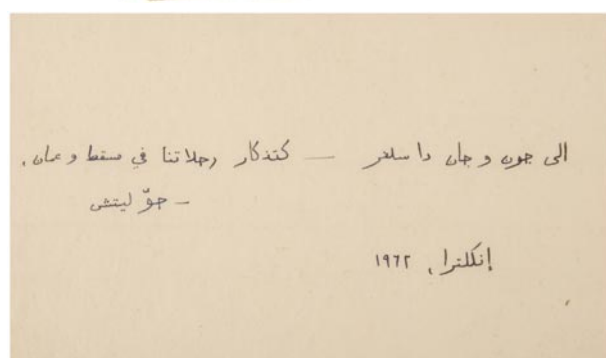 الى جون و جان دا سلفر — كتذكار رحلاتنا في مسقط و عمان.
– جوّ ليتشى
إنكلترا، ١٩٦٢